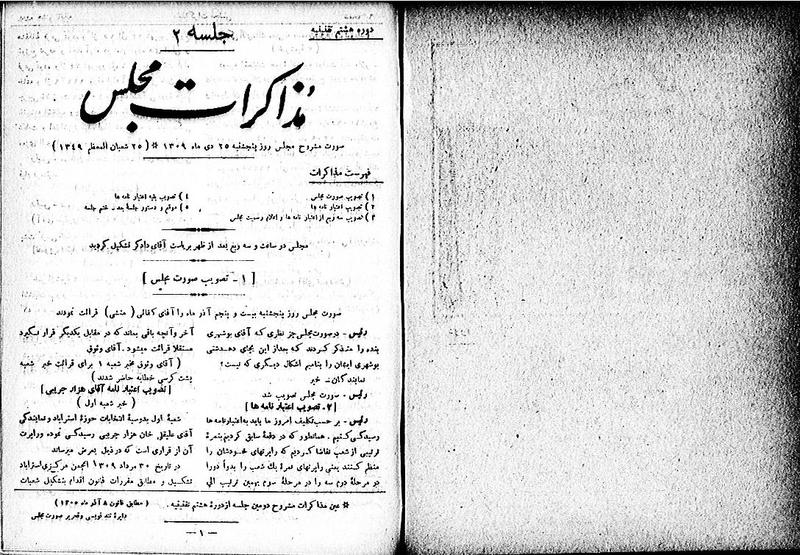 دوره هشتم تقنینیه
جلسه ۲
مذاکرات مجلس
صورت مشروح مجلس روز پنجشنبه ۲۵ دی ماه ۱۳۰۹ * (۲۵ شعبان المعظم ۱۳۴۹)
فهرست مذاکرات
۱) تصویب صورت مجلس
۲) تصویب اعتبار نامه ها
۳) تصویب سه ربع از اعتبار نامه ها و اعلام رسمیت مجلس
۴) تصویب بقیه اعتبار نامه ها
۵) موقع و دستور جلسهٔ بعد - ختم جلسه
مجلس دو ساعت و سه ربع بعد از ظهر بریاست آقای دادگر تشکیل گردید
[ ۱ - تصویب صورت مجلس ]
صورت مجلس روز پنجشنبه بیست و پنجم آذر ماه را آقای کفائی (منشی) قرائت نمودند
رئیس - در صورت مجلس جز نظری که آقای بوشهری
بنده را متذکر کردند که بعد از این بجای دهدشتی
بوشهری ایشان را بنامیم اشکال دیگری که نیست؟
نمایندگان - خیر
رئیس - صورت مجلس تصویب شد
[ ۲ - تصویب اعتبار نامه ها ]
رئیس - بر حسب تکلیف امروز ما باید به اعتبارنامه‌ها
رسیدگی کنیم . همانطور که در دفعهٔ سابق کردیم بنمرهٔ
ترتیبی از شعب تقاضا کردیم که راپرتهای خودشان را
منظم کنند یعنی راپرتهای نمرهٔ یک شعب را بدواً دوراً
در مرحلهٔ دوم سه را در مرحلهٔ سوم بهمین ترتیب الی
آخر و آنچه باقی بماند که در مقابل یکدیگر قرار نگیرد
مستقلا قرائت میشود . آقای وثوق
(آقای وثوق مخبر شعبه ۱ برای قرائت خبر شعبه
پشت کرسی خطابه حاضر شدند)
[ تصویب اعتبار نامه آقای هزار جریبی ]
(خبر شعبه اول)
شعبهٔ اول بدوسیهٔ انتخابات حوزهٔ استراباد و نمایندگی
آقای علیقلی خان هزار جریبی رسیدگی نموده و راپرت
آن از قراری است که در ذیل بعرض میرساند
در تاریخ ۳۰ مرداد ۱۳۰۹ انجمن مرکزی استراباد
تشکیل و مطابق مقررات قانون اقدام بتشکیل شعبات
* عین مذاکرات مشروح دومین جلسه از دورهٔ هشتم تقنینیه .
(مطابق قانون ۸ آذر ماه ۱۳۰۶)
دایرهٔ تند نویسی و تحریر صورت مجلس
— ۱ —